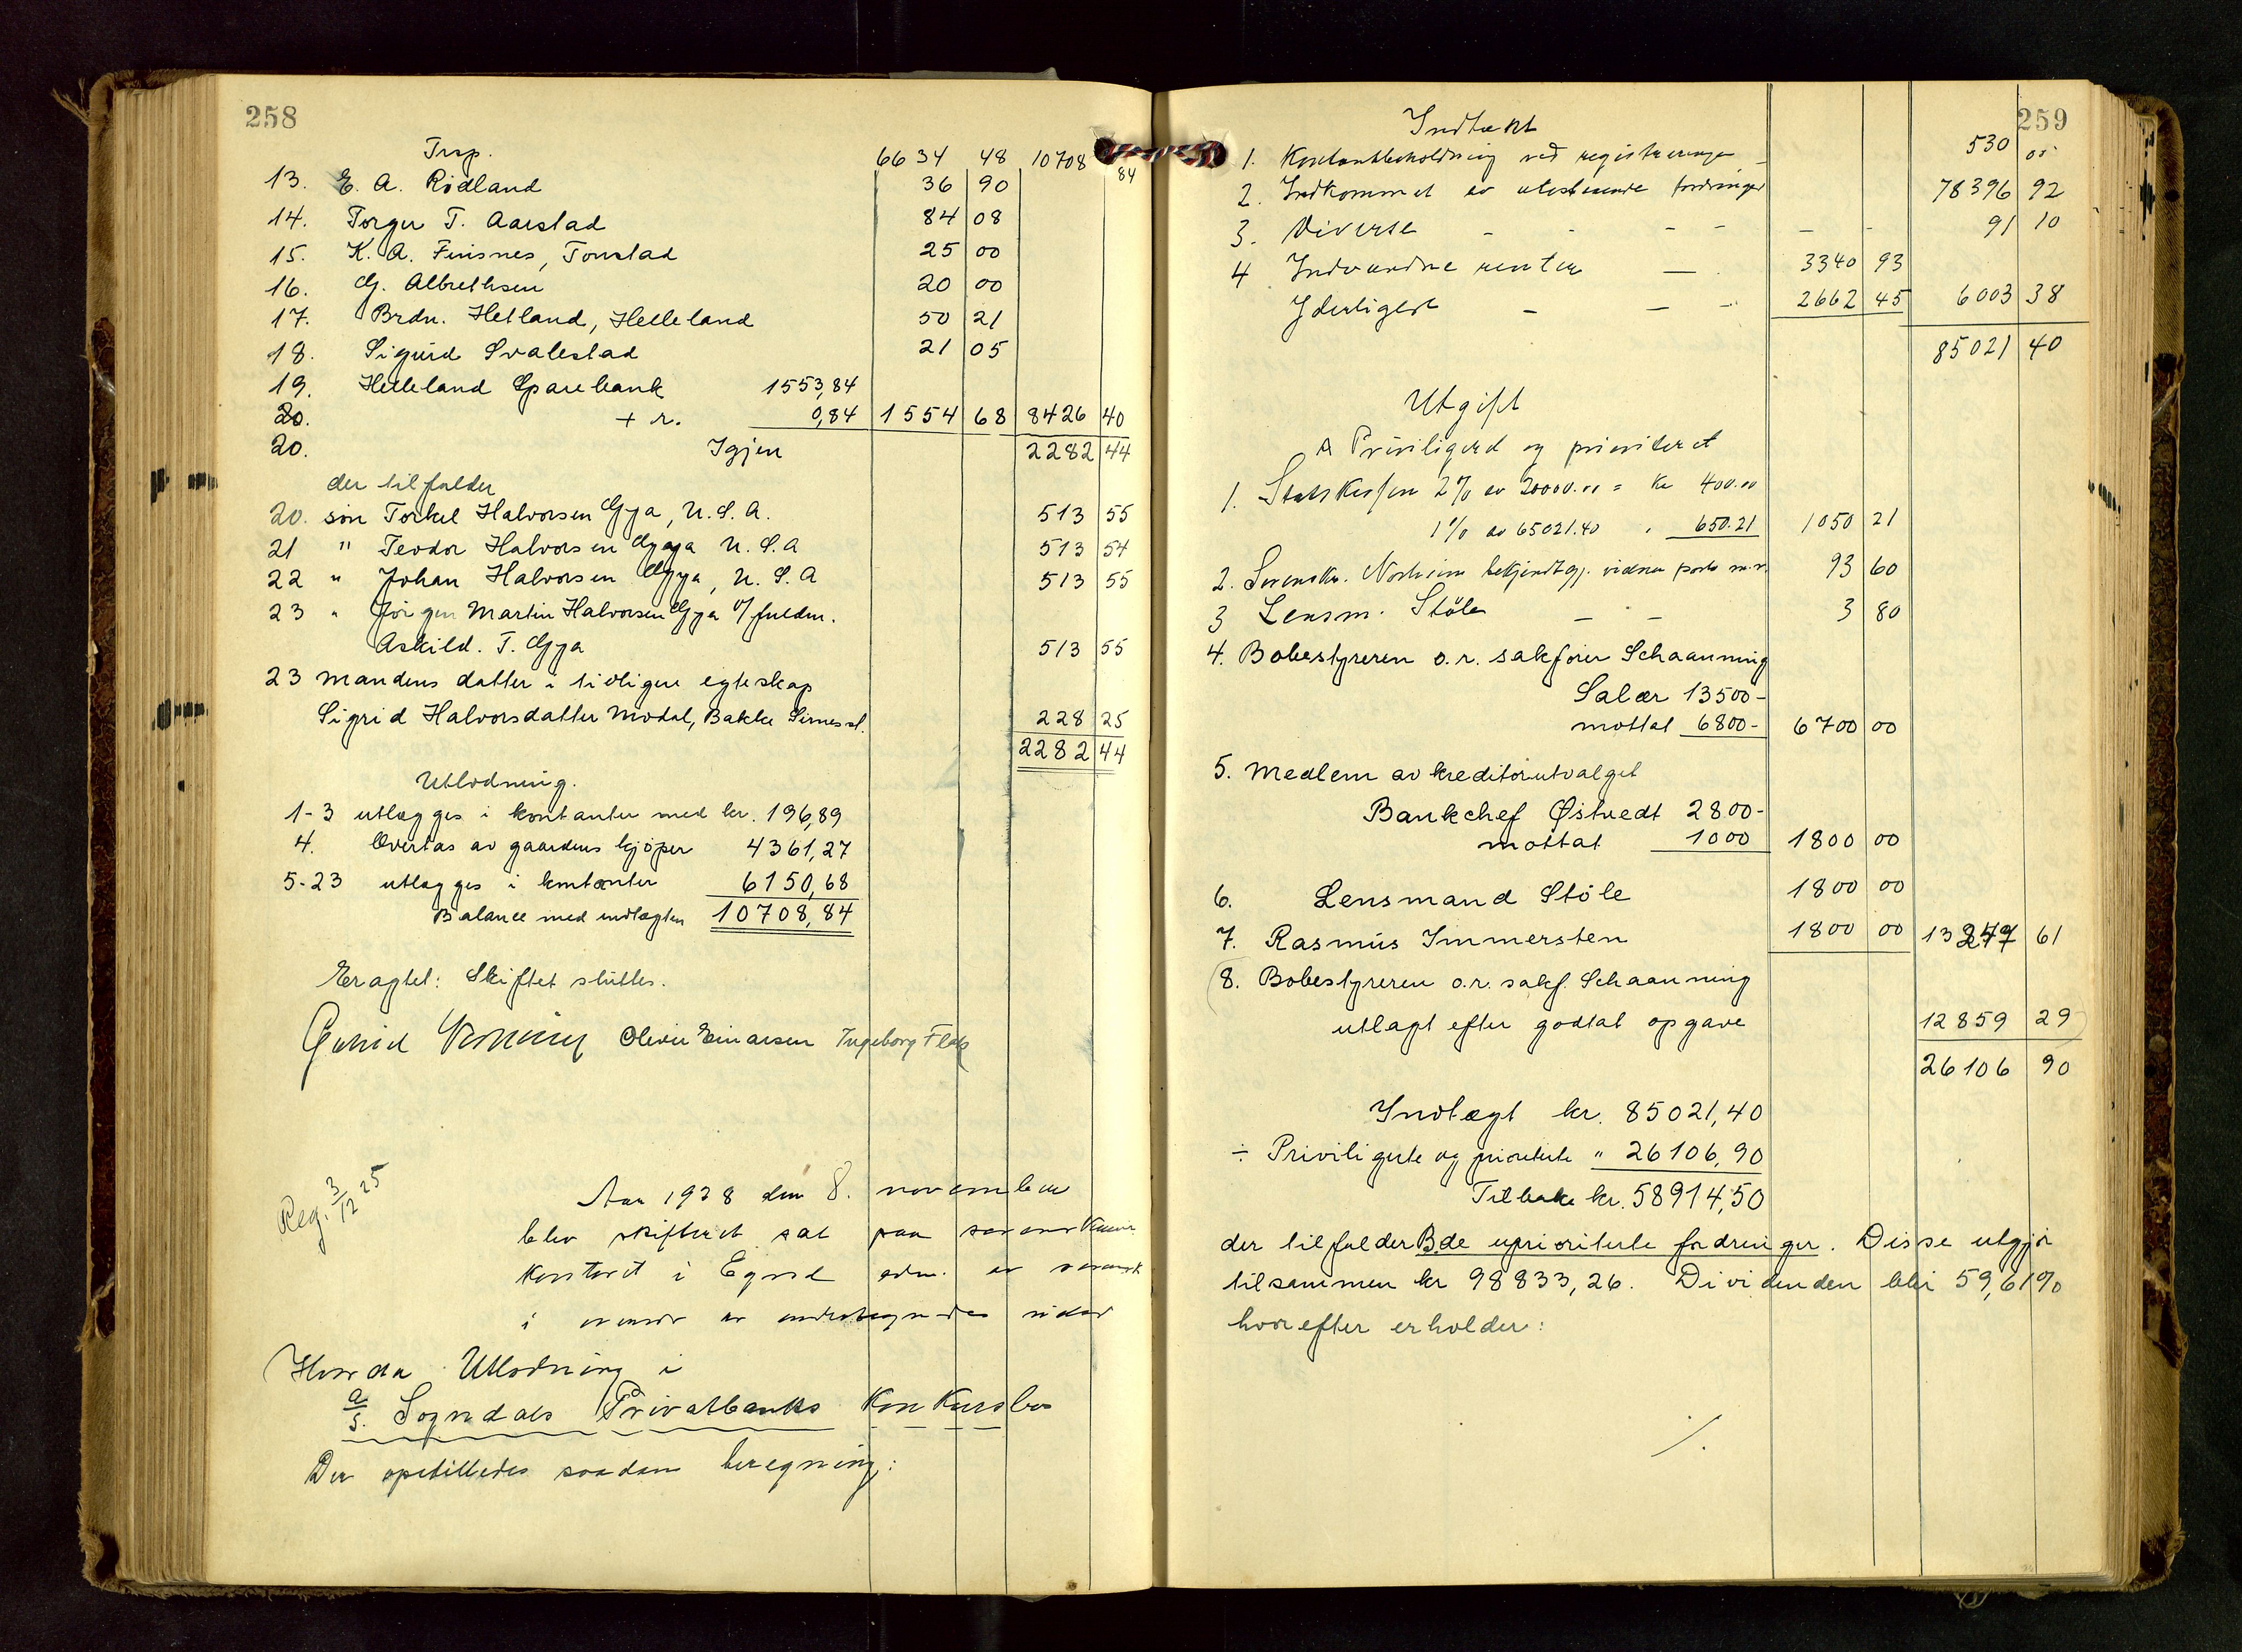 258
Trsp. 6634 48 10708 84
13. E. A. Rödland 36 90
14. Torger T. Aarstad 84 08
15. K. A. Finsnes, Tonstad 25 00
16. G. Albrethsen 20 00
17. Brdr. Hetland, Helleland 50 21
18. Sigurd Svalestad 21 05
19. Helleland Sparebank 1553,84
20. + r. 0,84 1554 68 8426 40
20. Igjen 2282 44
der tilfalder
20. søn Torkel Halvorsen Gya, U.S.A. 513 55
21 " Teodor Halvorsen Gya U.S.A 513 54
22 " Johan Halvorsen Gya, U.S.A 513 55
23 " Jörgen Martin Halvorsen Gya v/ fuldm.
Askild. T. Gya 513 55
23 Mandens datter i tidligere egteskap
Sigrid Halvorsdatter Modal, Bakke 228 25
2282 44
Utlodning.
1-3 utlægges i kontanter med kr. 196,89
4. Overtas av gaardens kjöper 4361,27
5-23 utlægges i kontanter 6150,68
Balance med indtægten 10708,84
Eragtet: Skiftet sluttes.
Oliver Einarsen Ingeborg
Reg. 3/12 25
Aar 1928 den 8. november
blev skifteret sat paa sorenskriver
kontoret i Egersd adm. av sorensk
i overvær av undertegnede vidner
Hvorda Utlodning i
a/s. Sogndals Privatbanks Konkursbo
Der opstilledes saadan beregning:
259
Indtækt
1. Kontantbeholdning ved registreringen 530 00
2. Indkommet av utestaaende fordringer 78396 92
3. Diverse - - - - - - 91 10
4 Indvundne renter — 3340 93
Yderligere - — - 2662 45 6003 38
85021 40
Utgift
A Priviligerd og prioriteret
1. Statskassen 2% av 20000.00 = kr 400.00
1% av 65021.40 " 650.21 1050 21
2. Sorenskr. bekjendtgj. vidner porto m.v. 93 60
3 Lensm. Stöle - - 3 80
4. Bobestyreren o.r. sakförer Schaanning
Salær 13500-
mottat 6800- 6700 00
5. Medlem av kreditorutvalget
Bankchef Østvedt 2800-
mottat 1000 1800 00
6. Lensmand Stöle 1800 00
7. Rasmus Immersten 1800 00 13247 61
(8. Bobestyreren o.r. sakf. Schaanning
utlagt efter godtat opgave 12859 29)
26106 90
Indtægt kr. 85021,40
÷ Priviligerte og prioriterte " 26106,90
Tilbake kr. 58914,50
der tilfalder B. de uprioriterte fordringer. Disse utgjör
tilsammen kr 98833,26. Dividenden blir 59,61%
hvorefter erholder:
./.